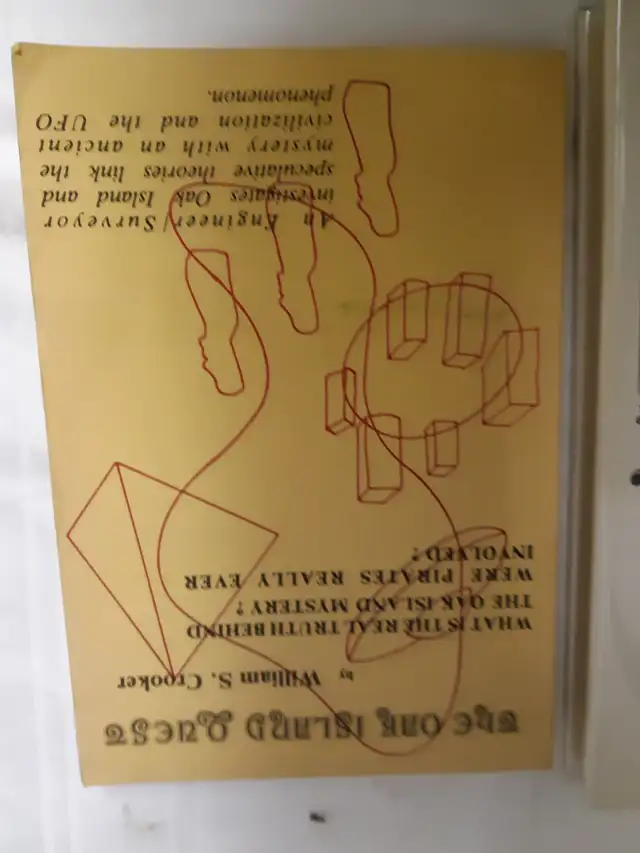 THE OAK ISLAND QUEST
by William S. Crooker
WHAT IS THE REAL TRUTH BEHIND
THE OAK ISLAND MYSTERY?
WERE PIRATES REALLY EVER
INVOLVED?
An Engineer/Surveyor
investigates Oak Island and
speculative theories link the
mystery with an ancient
civilization and the UFO
phenomenon.